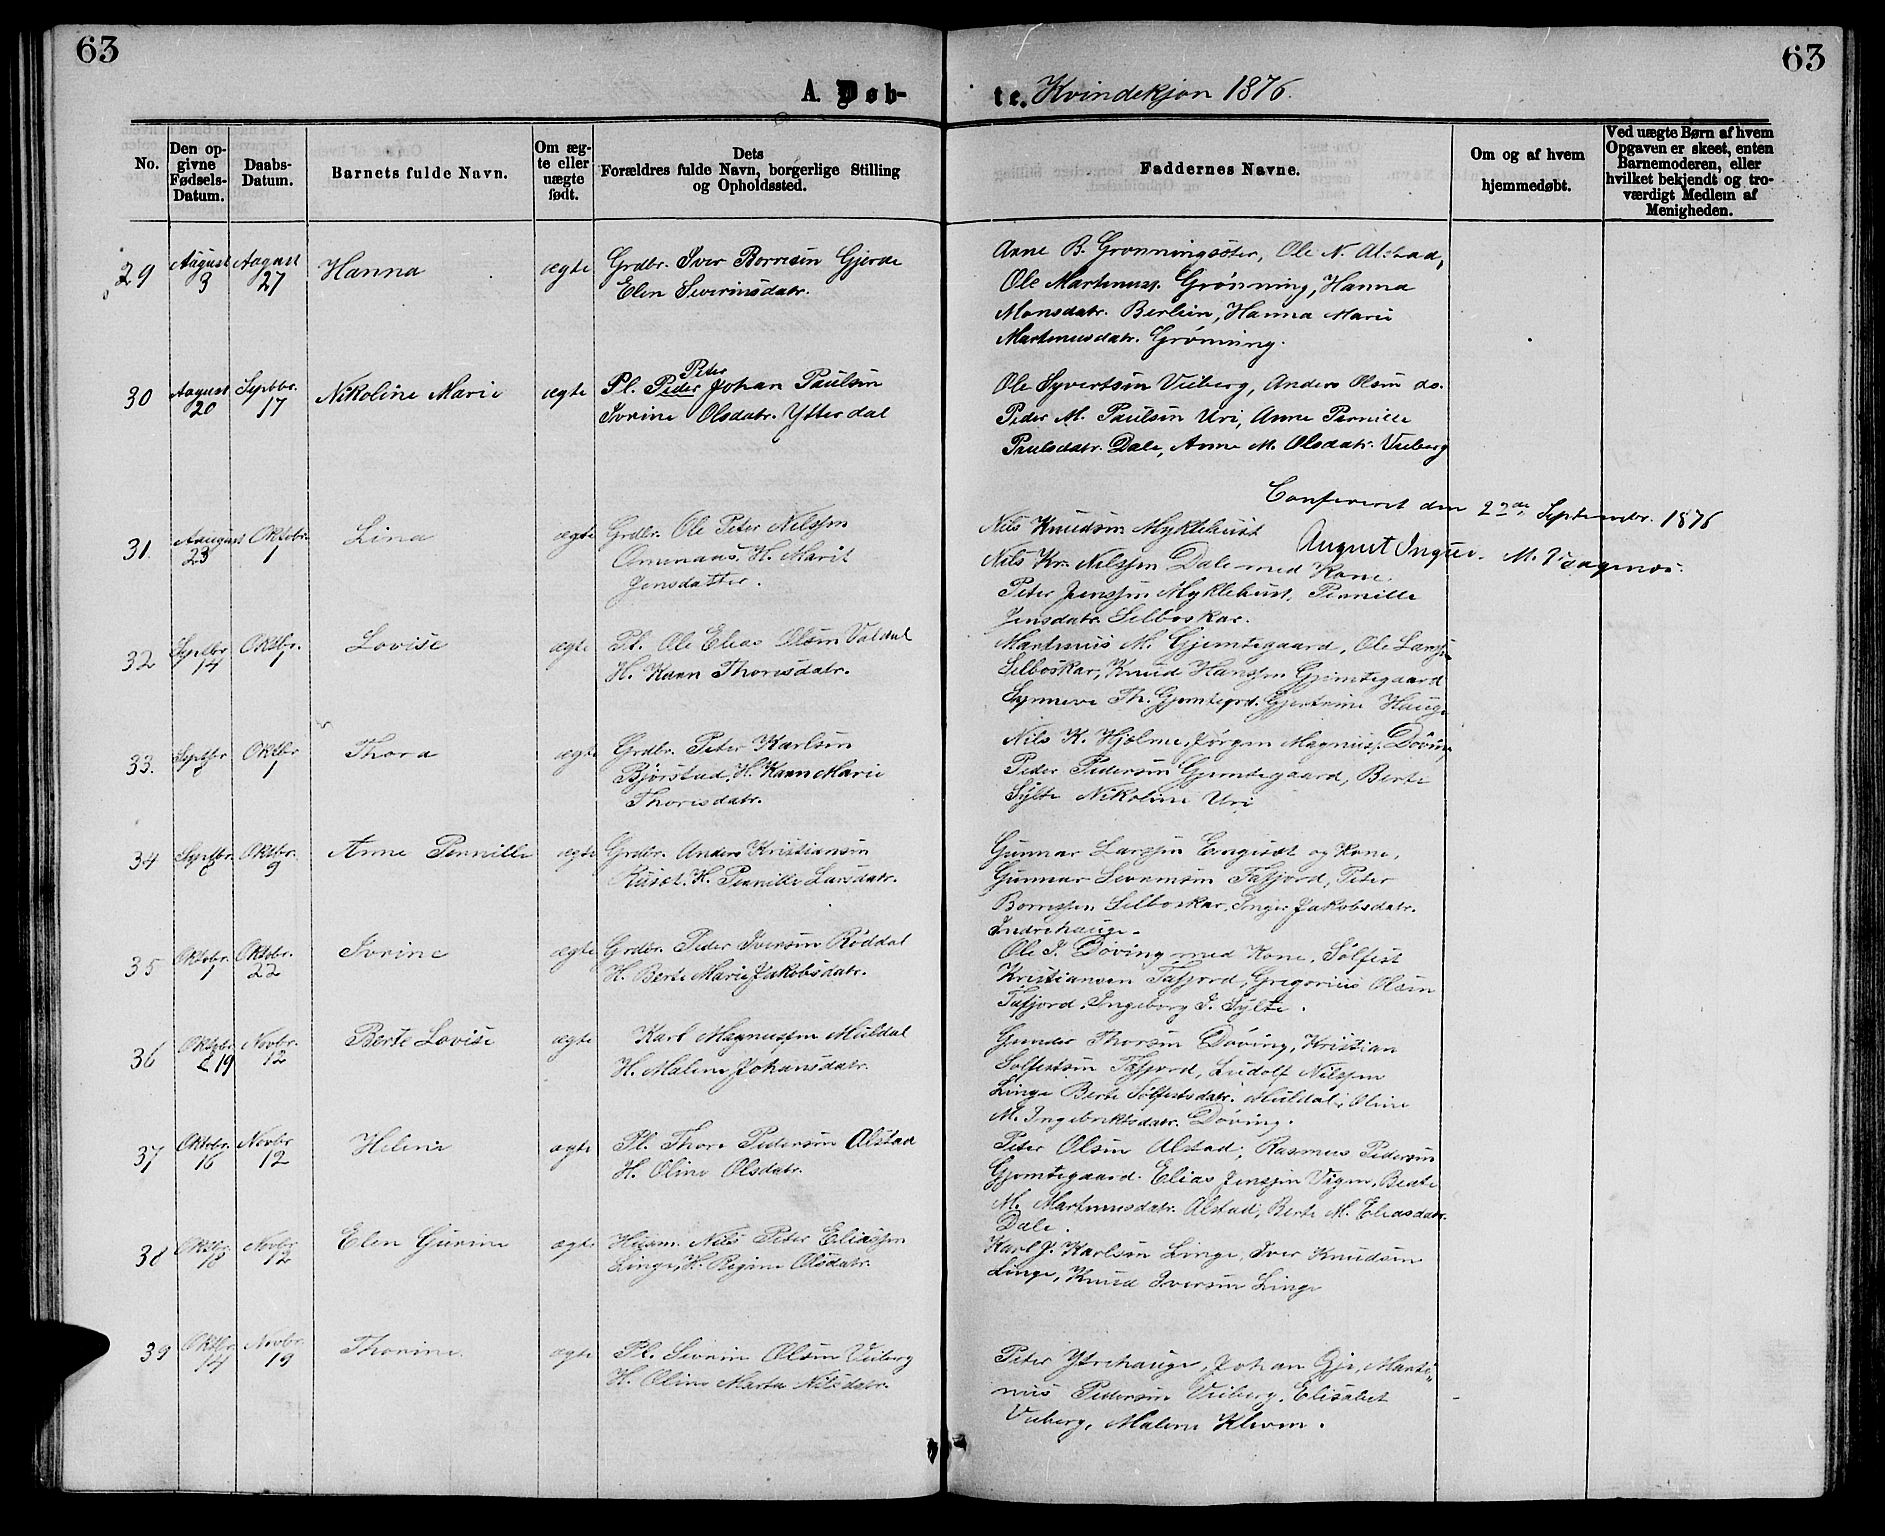 63
63
A. Døb-
te. Kvindekjøn 1876.
No.
Den op-
givne
Fødsels-
Datum.
Daabs-
Datum.
Barnets fulde Navn.
Om æg-
te eller
uægte
født.
Dets
Forældres fulde Navn, borgerlige Stilling
og Opholdssted.
Faddernes Navne.
Om og af hvem
hjemmedøbt.
Ved uægte Børn af hvem
Opgaven er skeet, enten
Barnemoderen, eller
hvilket bekjendt og tro-
værdigt Medlem af
Menigheden.
29 August 3 August 27 Hanna ægte Grdbr. Iver Borresen Gjerde
Elen Severinsdatr.
Anne B. Grønningsæter, Ole N. Alstad,
Ole Martinuss. Grønning, Hanna
Monsdatr. Berlien, Hanna Marie
Martinusdatr. Grønning.
30 August 20 Septbr. 17 Nikoline Marie ægte Pl. Peder Johan Paulsen
Peter
Ivrine Olsdatr. Ytterdal
Ole Syvertsen Viiberg, Anders Olsen do.
Peder M. Paulsen Uri, Anne Pernille
Paulsdatr. Dale, Anne M. Olsdatr. Viiberg
Confereret den 22de Septembr. 1876
31. August 23 Oktobr. 1 Lina ægte Grdbr. Ole Peter Nilssen
Omenaas. H. Marit
Jensdatter.
Nils Knudsen Myklebust
Nils Kr. Nilssen Dale med Kone.
Peter Jenssen Myklebust, Pernille
Jensdatr. Selboskar.
32 Septbr. 14 Oktbr. 1 Lovise ægte Pl. Ole Elias Olsen Valdal
H. Karn Thoresdatr.
Martinus M. Gjemtegaard, Ole Larss.
Selboskar, Knud Hanssen Gjemtegaard
Synneve Th. Gjemtegrd. Gjertrine Hauge
33. Septbr Oktbr 1 Thora ægte Grdbr. Peter Karlsen
Bjørstad, H. Karn Marie
Thoresdatr.
Nils K. Hjelme, Jørgen Magnuss. Døving,
Peder Pedersen Gjemtegaard, Berte
Sylte Nikoline Uri
34 Septbr. 8 Oktbr. 9 Anne Pernille ægte Grdbr. Anders Kristiansen
H. Pernille Larsdatr.
Gunnar Larssen Engeset og Kone,
Gunnar Tafjord, Peter
Borressen Selboskar, Inger Jakobsdatr.
Indrehauge.
35 Oktobr. 1 Oktobr. 22 Ivrine ægte Grdbr. Peder Iversen Røddal
H. Berte Marie Jakobsdatr.
Ole J. Døving med Kone, Sølfest
Kristiansen Tafjord, Gregorius Olsen
Tafjord, Ingeborg J. Sylte.
36 Oktobr. 19 Novbr. 12 Berte Lovise ægte Karl Magnussen Muldal
H. Malene Johansdatr.
Gunder Thorsen Døving, Kristian
Solfestsen Tafjord, Ludolf Nilssen
Linge Berte Sølfestsdatr. Muldal, Oline
M. Ingebriktsdatr. Døving.
37 Oktobr. 16 Novbr 12 Helene ægte Pl. Thore Pedersen Alstad
H. Oline Olsdatr.
Peter Olsen Alstad, Rasmus Pedersen
Gjemtegaard. Elias Jenssen Vigen, Beate
M. Martinusdatr. Alstad, Berte M. Eliasdatr.
Dale.
38 Oktbr. 18 Novbr 12 Elen Gurine ægte Husm. Nils Peter Eliassen
Linge, H. Regine Olsdatr.
Karl J. Karlsen Linge, Iver Knudsen
Linge, Knud Iversen Linge
39 Oktbr. 14 Novbr. 19 Thorine ægte Pl. Severin Olsen Viiberg
H. Oline Marta Nilsdatr.
Peter Ytrehauge, Johan Gjr, Marti-
nus Pedersen Viiberg, Elisabet
Viiberg, Malene Kleven.